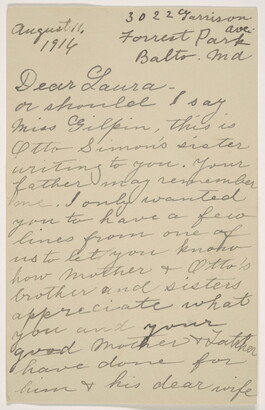 3022 Garrison
ave.
August 11,
1916
Forrest Park
Balto. Md
Dear Laura -
or should I say
Miss Gilpin, this is
Otto Simon's sister
writing to you. Your
father may remember
me. I only wanted
you to have a few
lines from one of
us to let you know
how Mother & Otto's
brother and sisters
appreciate what
you and your
good Mother & Father
have done for
him & his dear wife